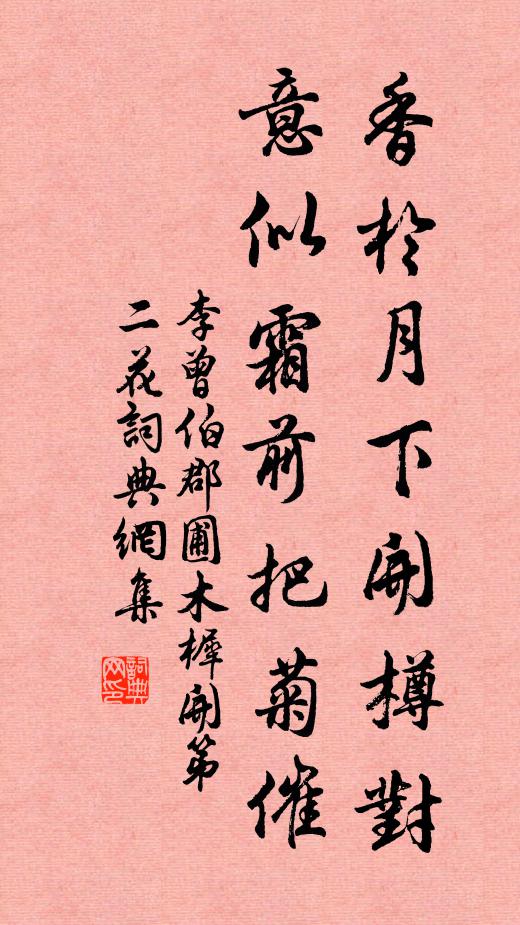 香於月下開樽對
意似霜前把菊催
李曾伯郡圃木樨開第
二花詞典網集
詞典网印